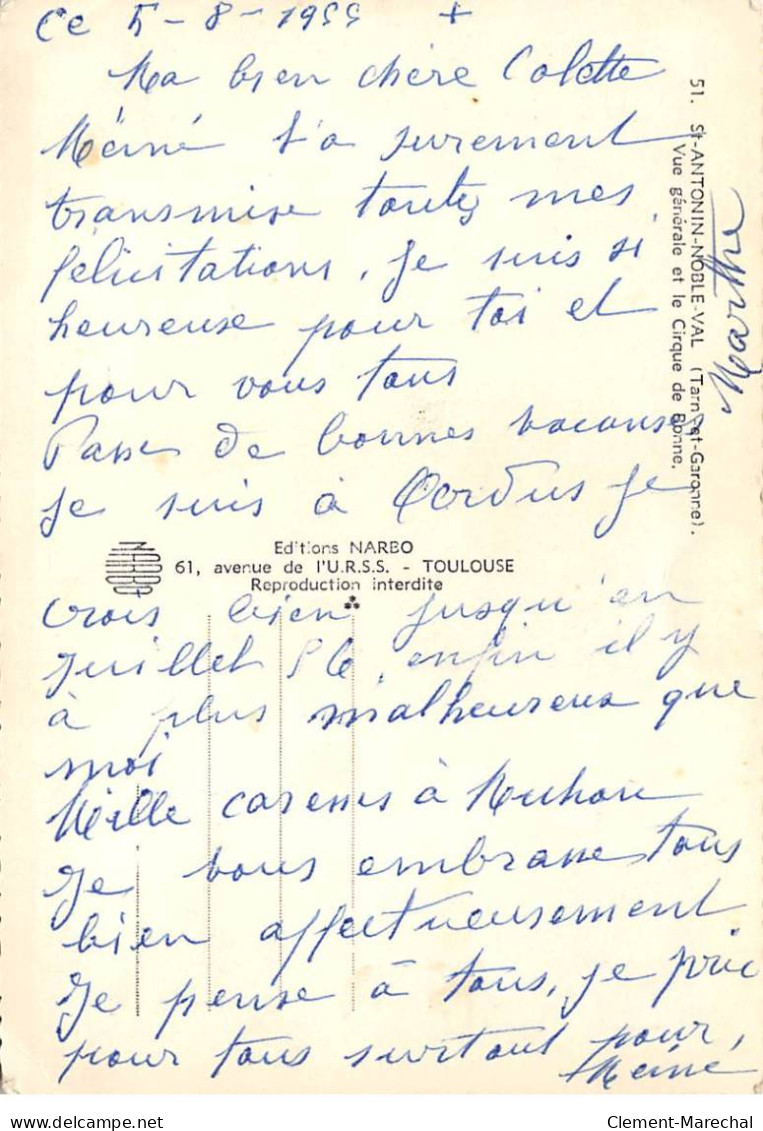 Ce 5-8-1955 +
Ma bien chère Colette
Méiné t'a surement
transmise toutes mes
félicitations. Je suis si
heureuse pour toi et
pour vous tous
Passe de bonnes vacanses
je suis à Cordus je
crois bien jusqu'en
juillet 56, enfin il y
à plus malheureux que
moi
Mille caresses à
Je vous embrasse tous
bien affectueusement
Je pense à tous, je prie
pour tous surtout pour,
Méiné
51. St-ANTONIN-NOBLE-VAL (Tarn-et-Garonne).
Vue générale et le Cirque de Bonne.
NARBO
Editions NARBO
61, avenue de l'U.R.S.S. - TOULOUSE
Reproduction interdite
Clement-Marechal